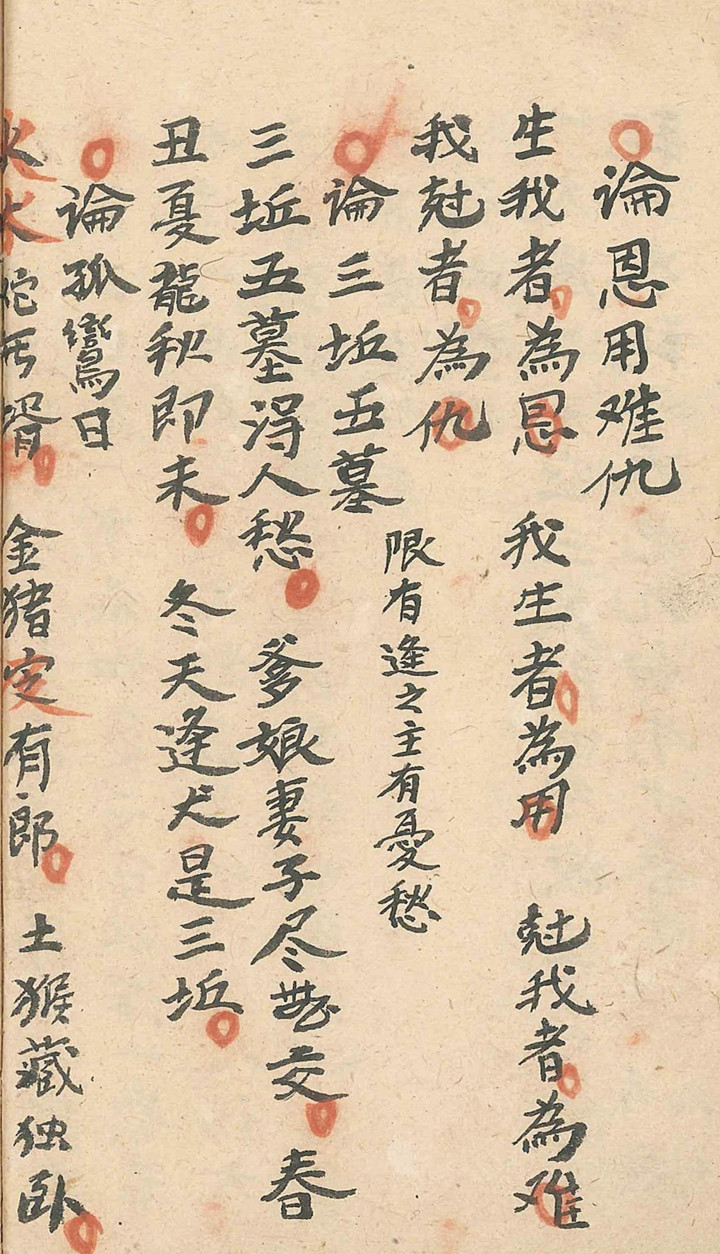 論恩用难仇
生我者為恩 我生者為用 尅我者為难
我尅者為仇
論三坵五墓 限有逢之主有憂愁
三坵五墓淂人愁 爹娘妻子尽交 春
丑夏龍秋即未 冬天逢犬是三坵
論孤鸞日
火蛇壻 金猪定有郎 土猴藏独卧